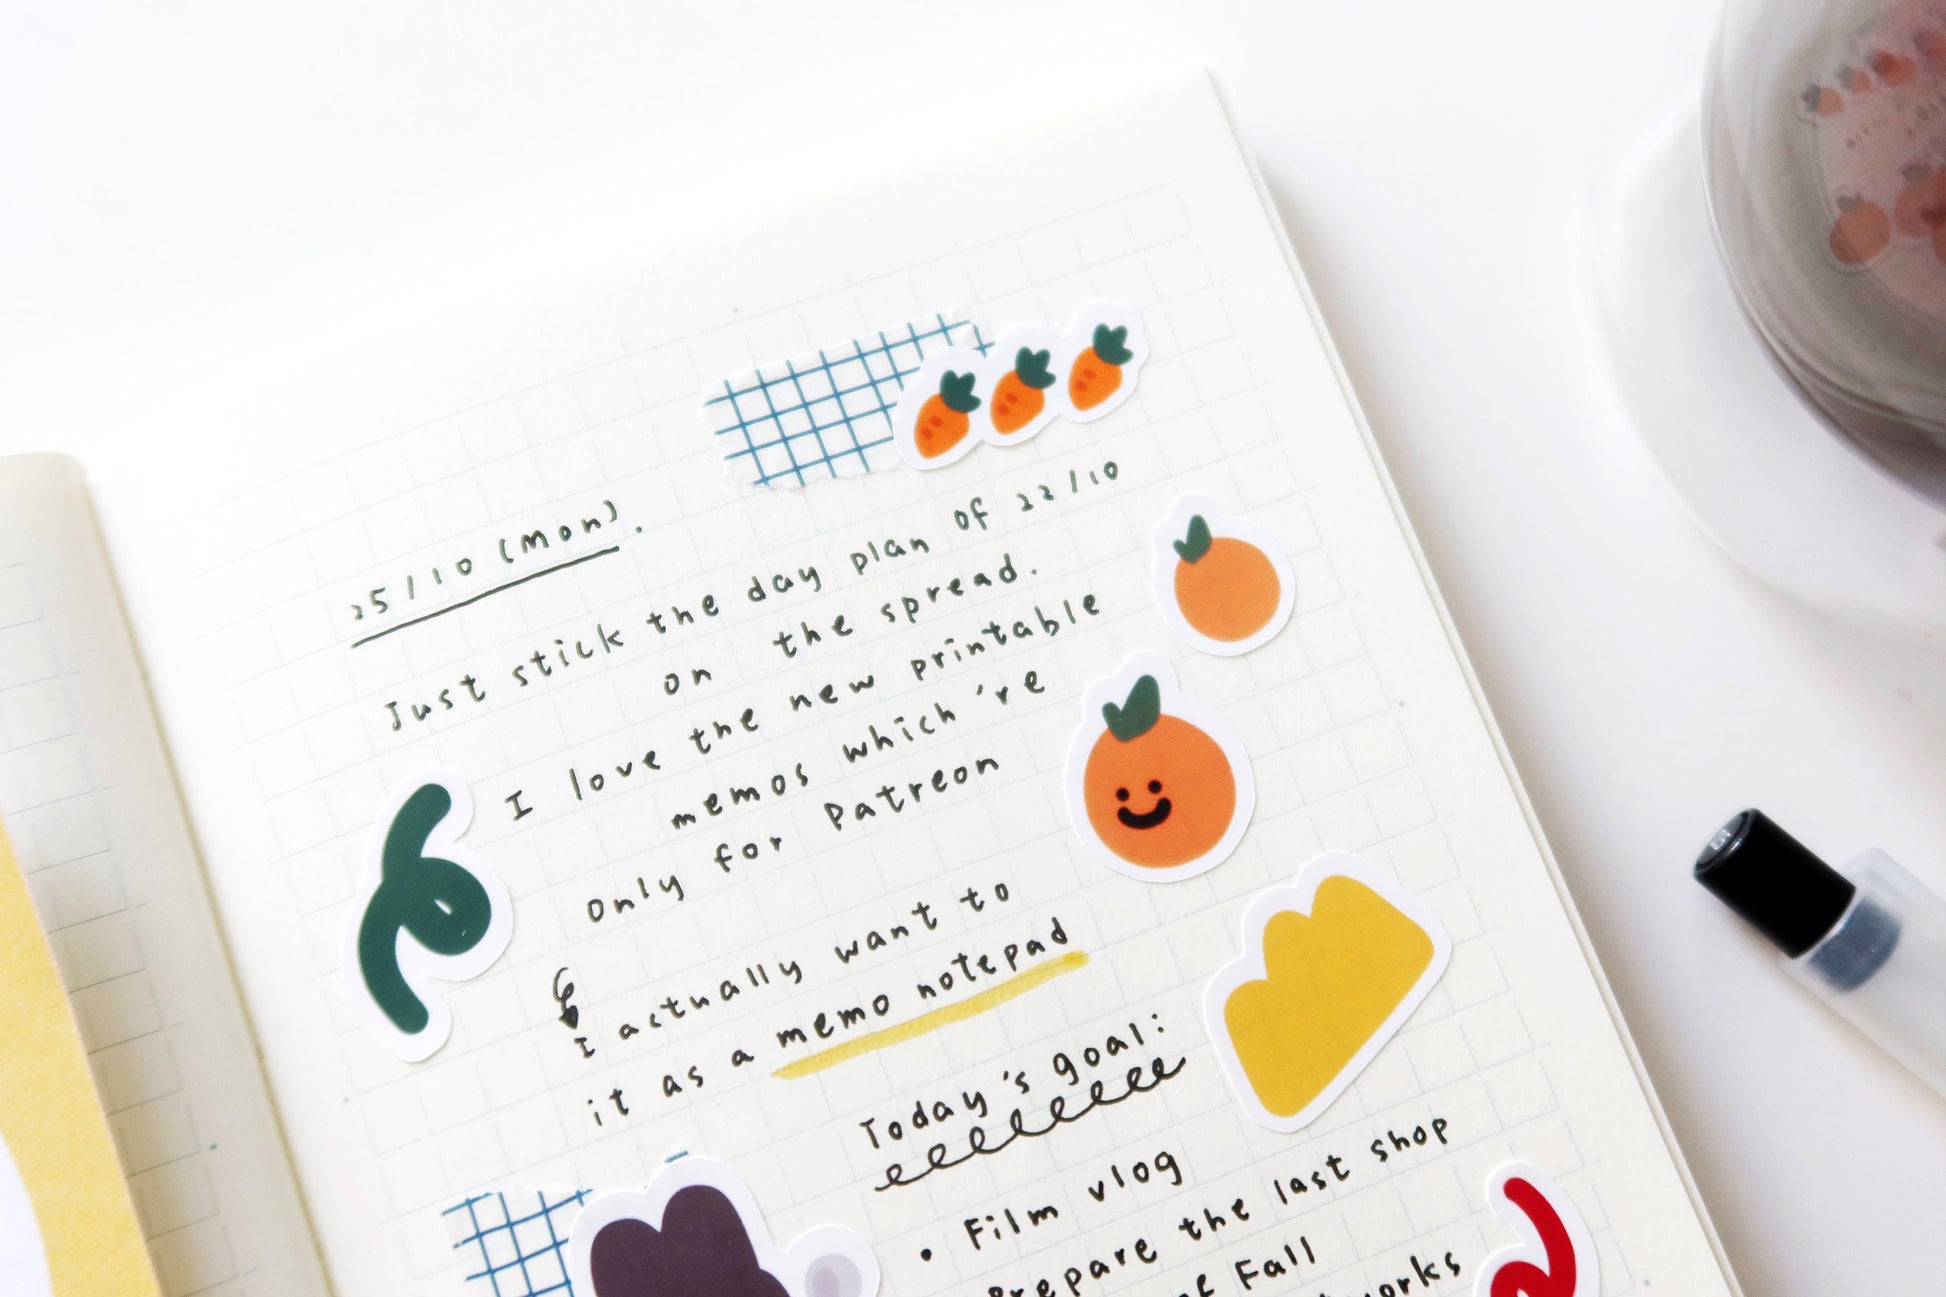 25/10 (Mon).
Just stick the day plan of 22/10
on the spread.
I love the new printable
memos which're
Only for Patreon
I actually want to
it as a memo notepad
Today's goal:
• Film vlog
Prepare the last shop
of Fall